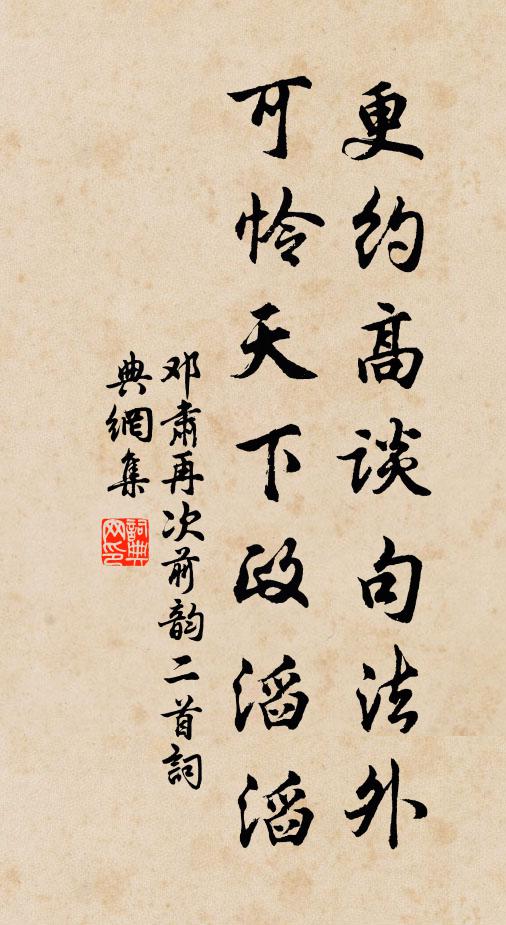 更约高谈句法外
可怜天下政滔滔
邓肃再次前韵二首詞
典網集
詞典网印